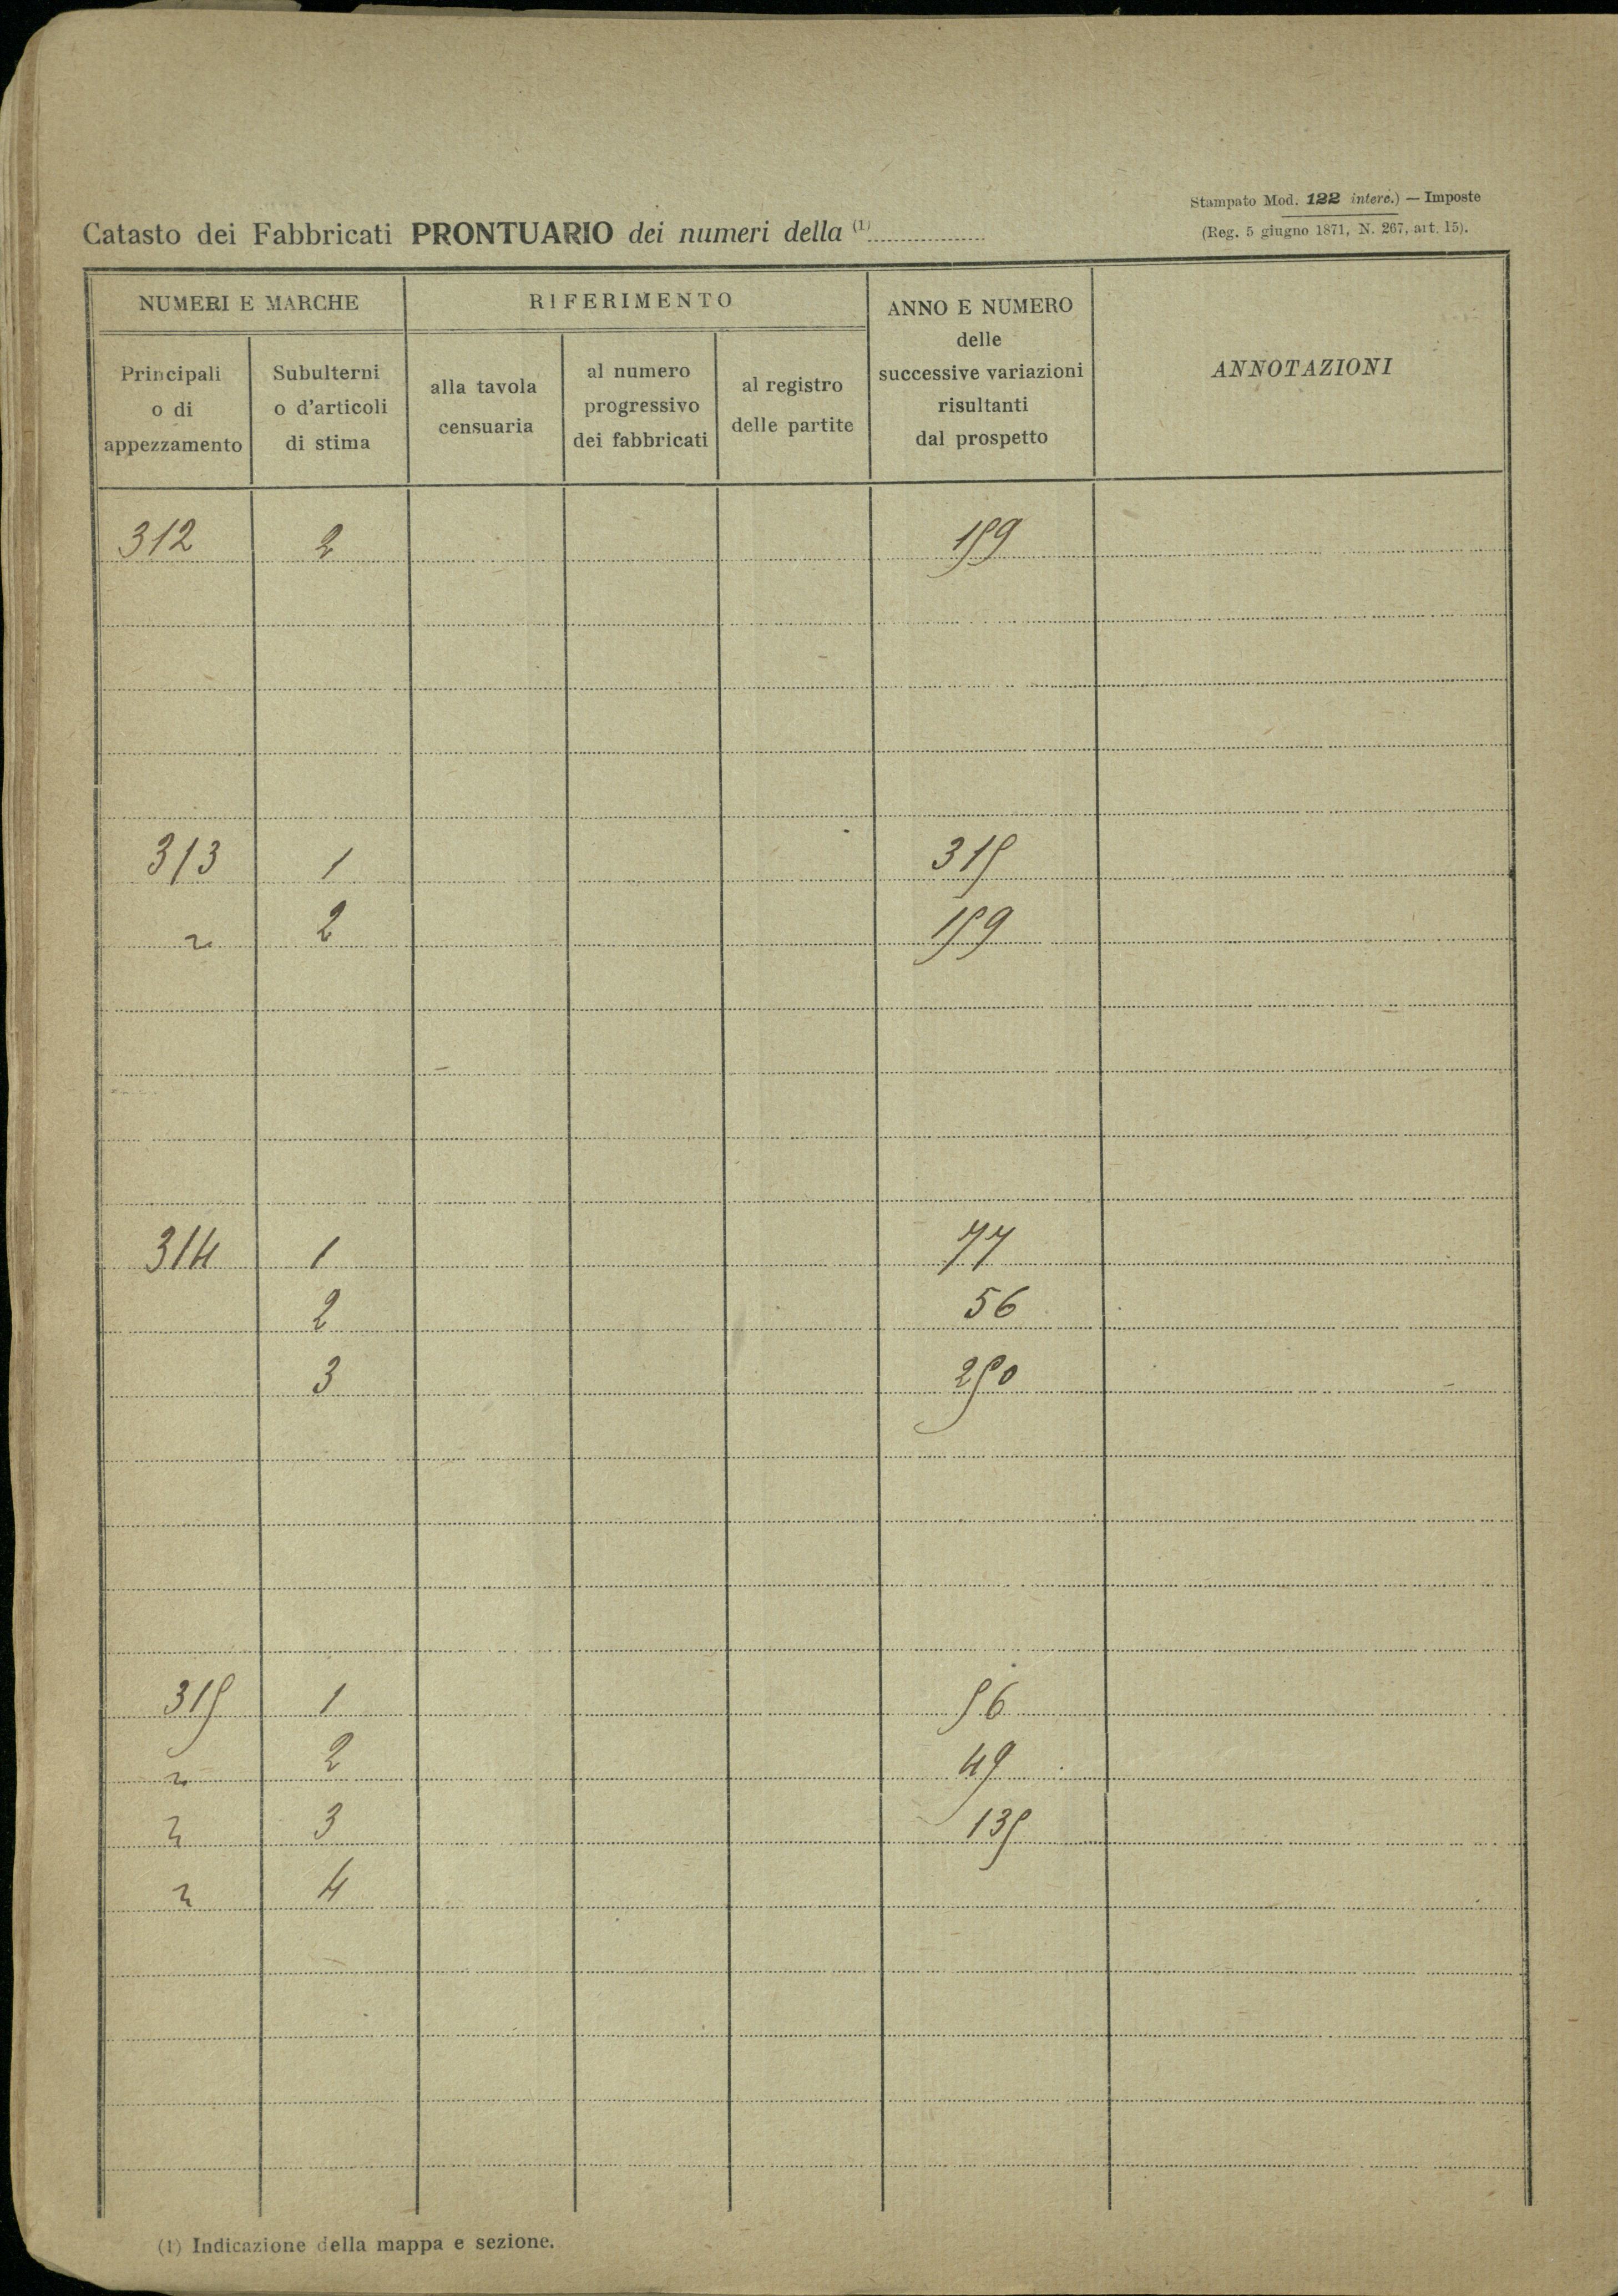 Stampato Mod. 122 interc.) — Imposte
(Reg. 5 giugno 1871, N. 267, art. 15).
Catasto dei Fabbricati PRONTUARIO dei numeri della (1)
NUMERI E MARCHE
RIFERIMENTO
ANNO E NUMERO
delle
successive variazioni
risultanti
dal prospetto
ANNOTAZIONI
Principali
o di
appezzamento
Subulterni
o d'articoli
di stima
alla tavola
censuaria
al numero
progressivo
dei fabbricati
al registro
delle partite
312 2 159
313 1 315
" 2 159
314 1 77
2 56
3 250
315 1 56
" 2 49
" 3 135
" 4
(1) Indicazione della mappa e sezione.